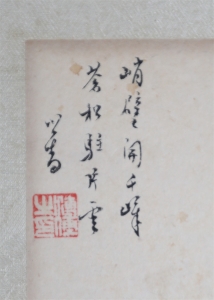 峭壁開千嶂
蒼松駐片雲
心畬